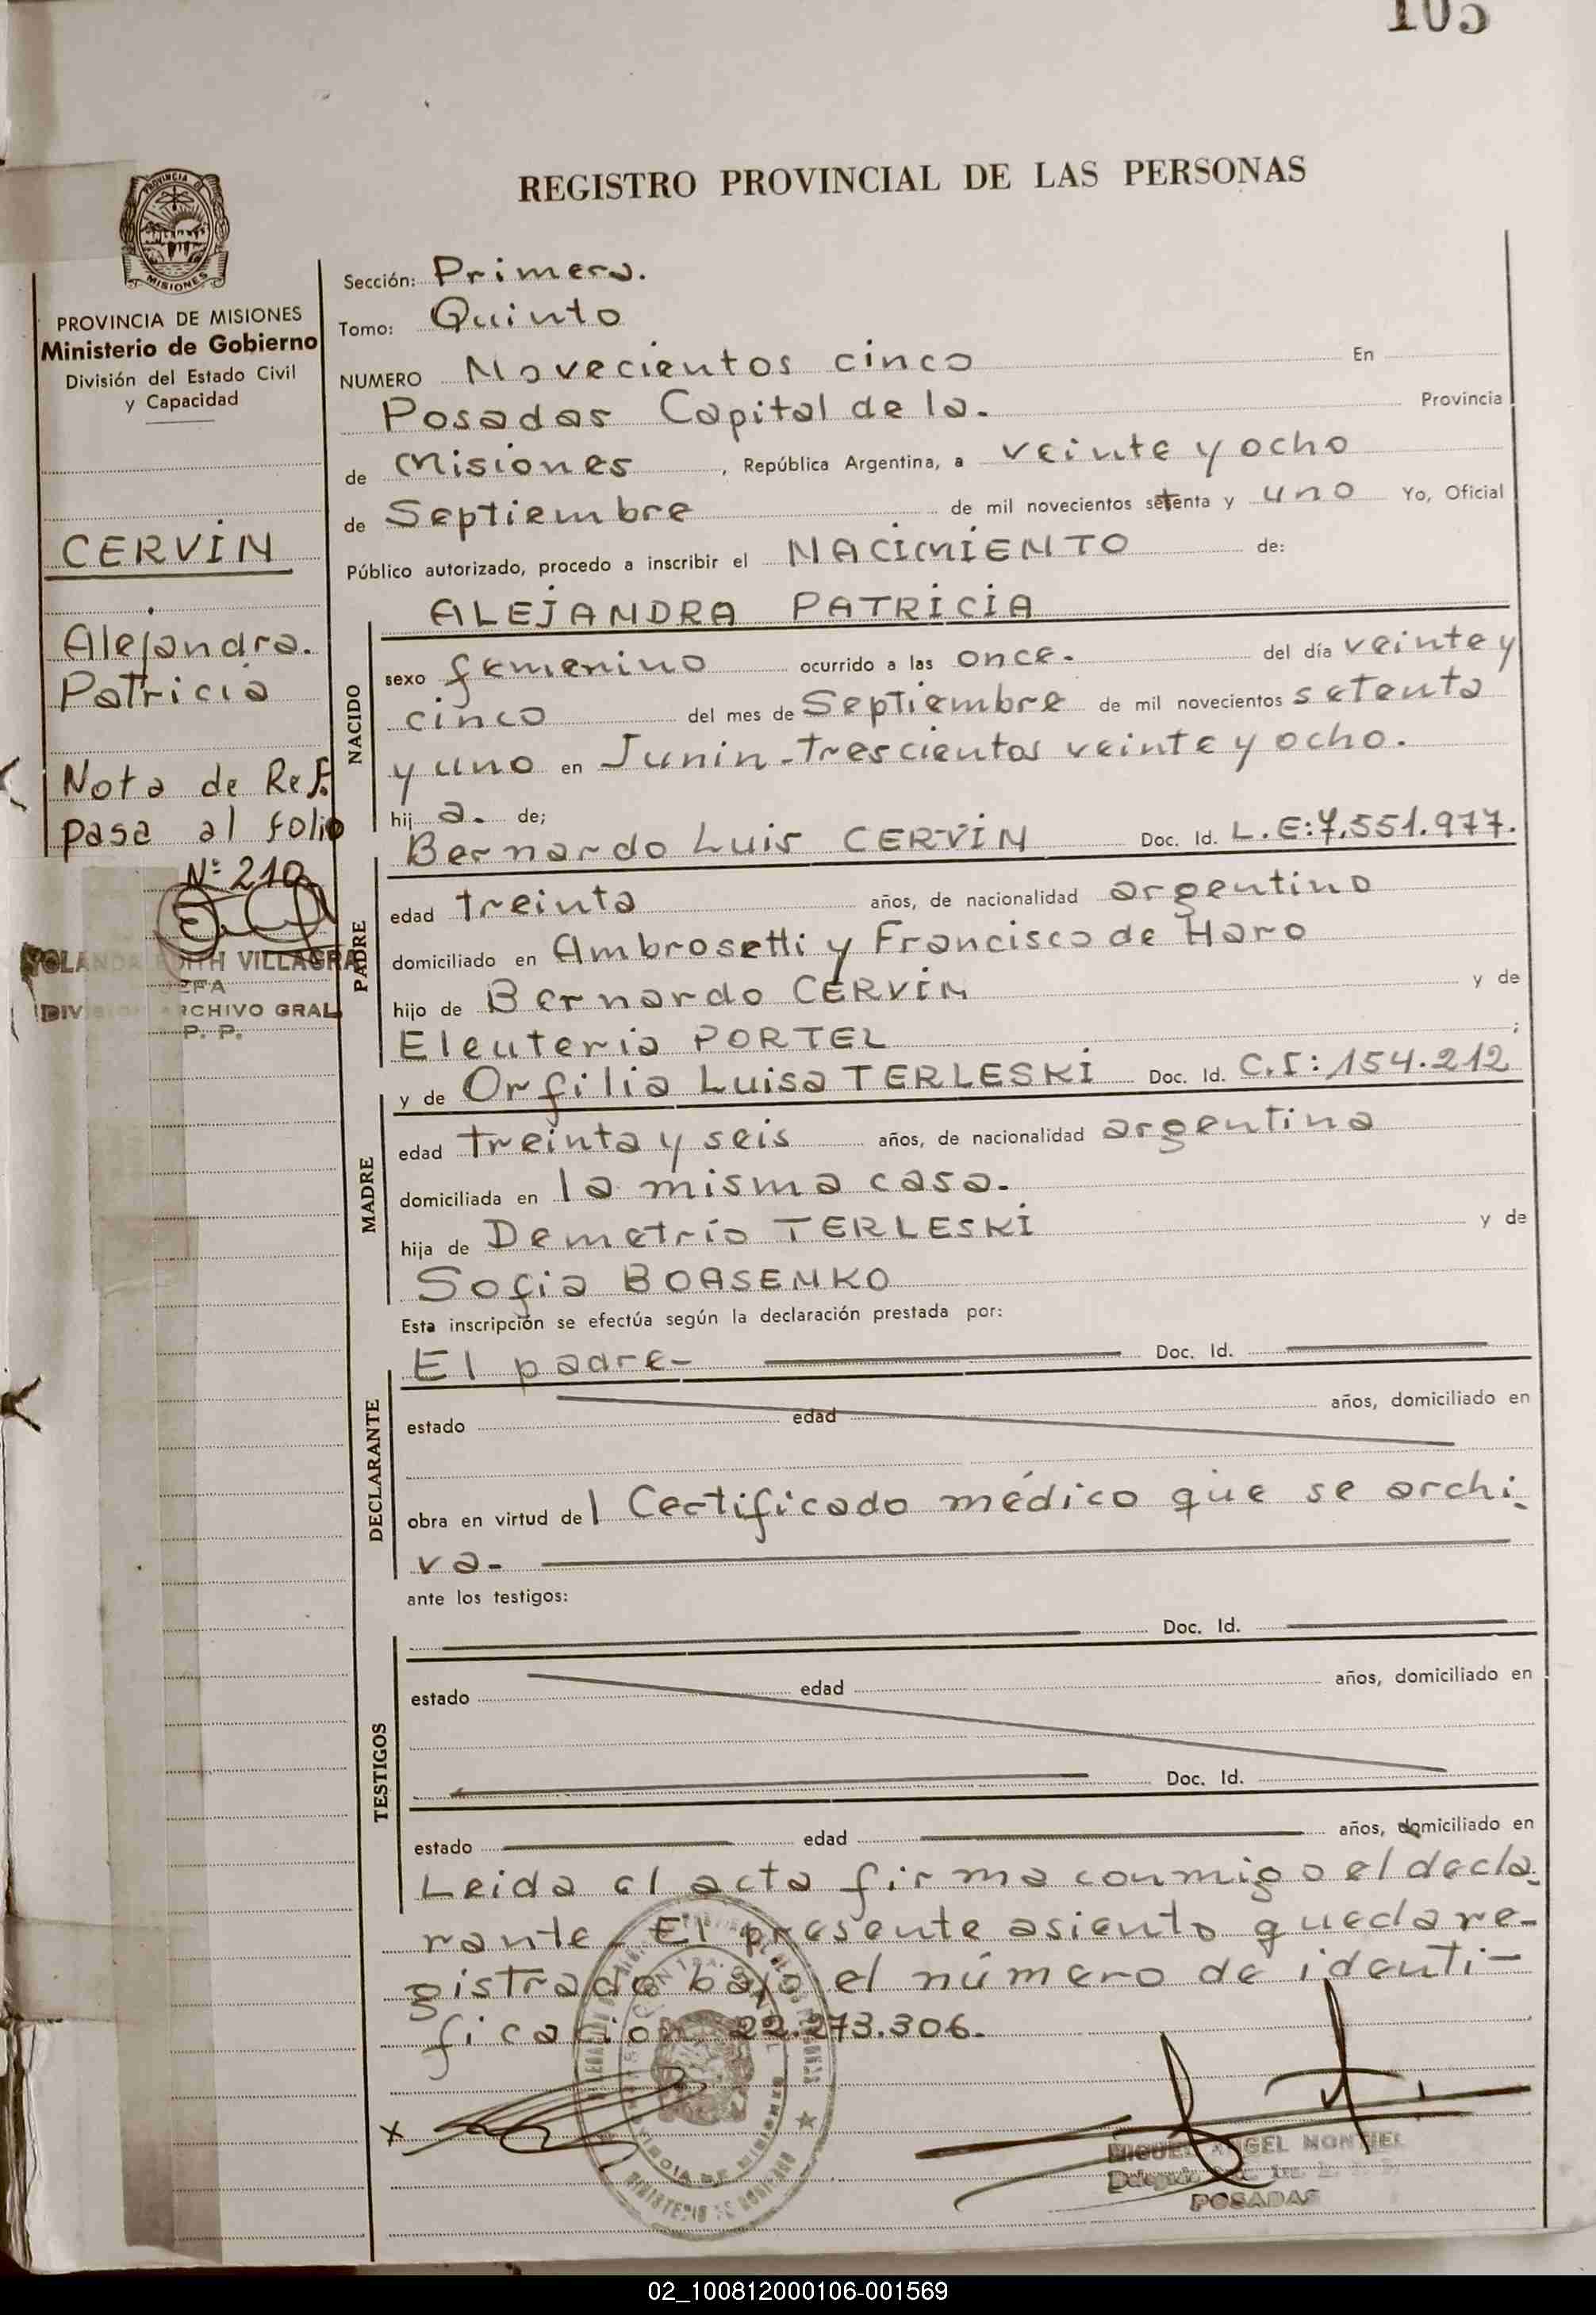 105
REGISTRO PROVINCIAL DE LAS PERSONAS
PROVINCIA DE MISIONES
Ministerio de Gobierno
División del Estado Civil
y Capacidad
CERVIN
Alejandra.
Patricia
Nota de Ref.
pasa al folio
Nº 210
YOLANDA EDITH VILLAGRA
JEFA
DIVISION ARCHIVO GRAL
P. P.
Sección: Primera.
Tomo: Quinto
NUMERO Novecientos cinco En
Posadas Capital de la. Provincia
de Misiones, República Argentina, a veinte y ocho
de Septiembre de mil novecientos setenta y uno Yo, Oficial
Público autorizado, procedo a inscribir el NACIMIENTO de:
NACIDO
ALEJANDRA PATRICIA
sexo femenino ocurrido a las once. del día veinte y
cinco del mes de Septiembre de mil novecientos setenta
y uno en Junin-trescientos veinte y ocho.
hij a. de;
PADRE
Bernardo Luis CERVIN Doc. Id. L.E:7.551.977.
edad treinta años, de nacionalidad argentino
domiciliado en Ambrosetti y Francisco de Haro
hijo de Bernardo CERVIN y de
Eleuteria PORTEL ;
MADRE
y de Orfilia Luisa TERLESKI Doc. Id. C.I:154.212
edad treinta y seis años, de nacionalidad argentina
domiciliada en la misma casa.
hija de Demetrio TERLESKI y de
Sofia BOASENKO
Esta inscripción se efectúa según la declaración prestada por:
DECLARANTE
El padre- Doc. Id.
estado edad años, domiciliado en
obra en virtud de l Certificado médico que se archi-
va-
ante los testigos:
TESTIGOS
Doc. Id.
estado edad años, domiciliado en
Doc. Id.
estado edad años, domiciliado en
Leida el acta firma conmigo el decla-
rante. El presente asiento queda re-
gistrado bajo el número de identi-
ficación 22.273.306.
x
MIGUEL ANGEL MONTIEL
POSADAS
02_100812000106-001569